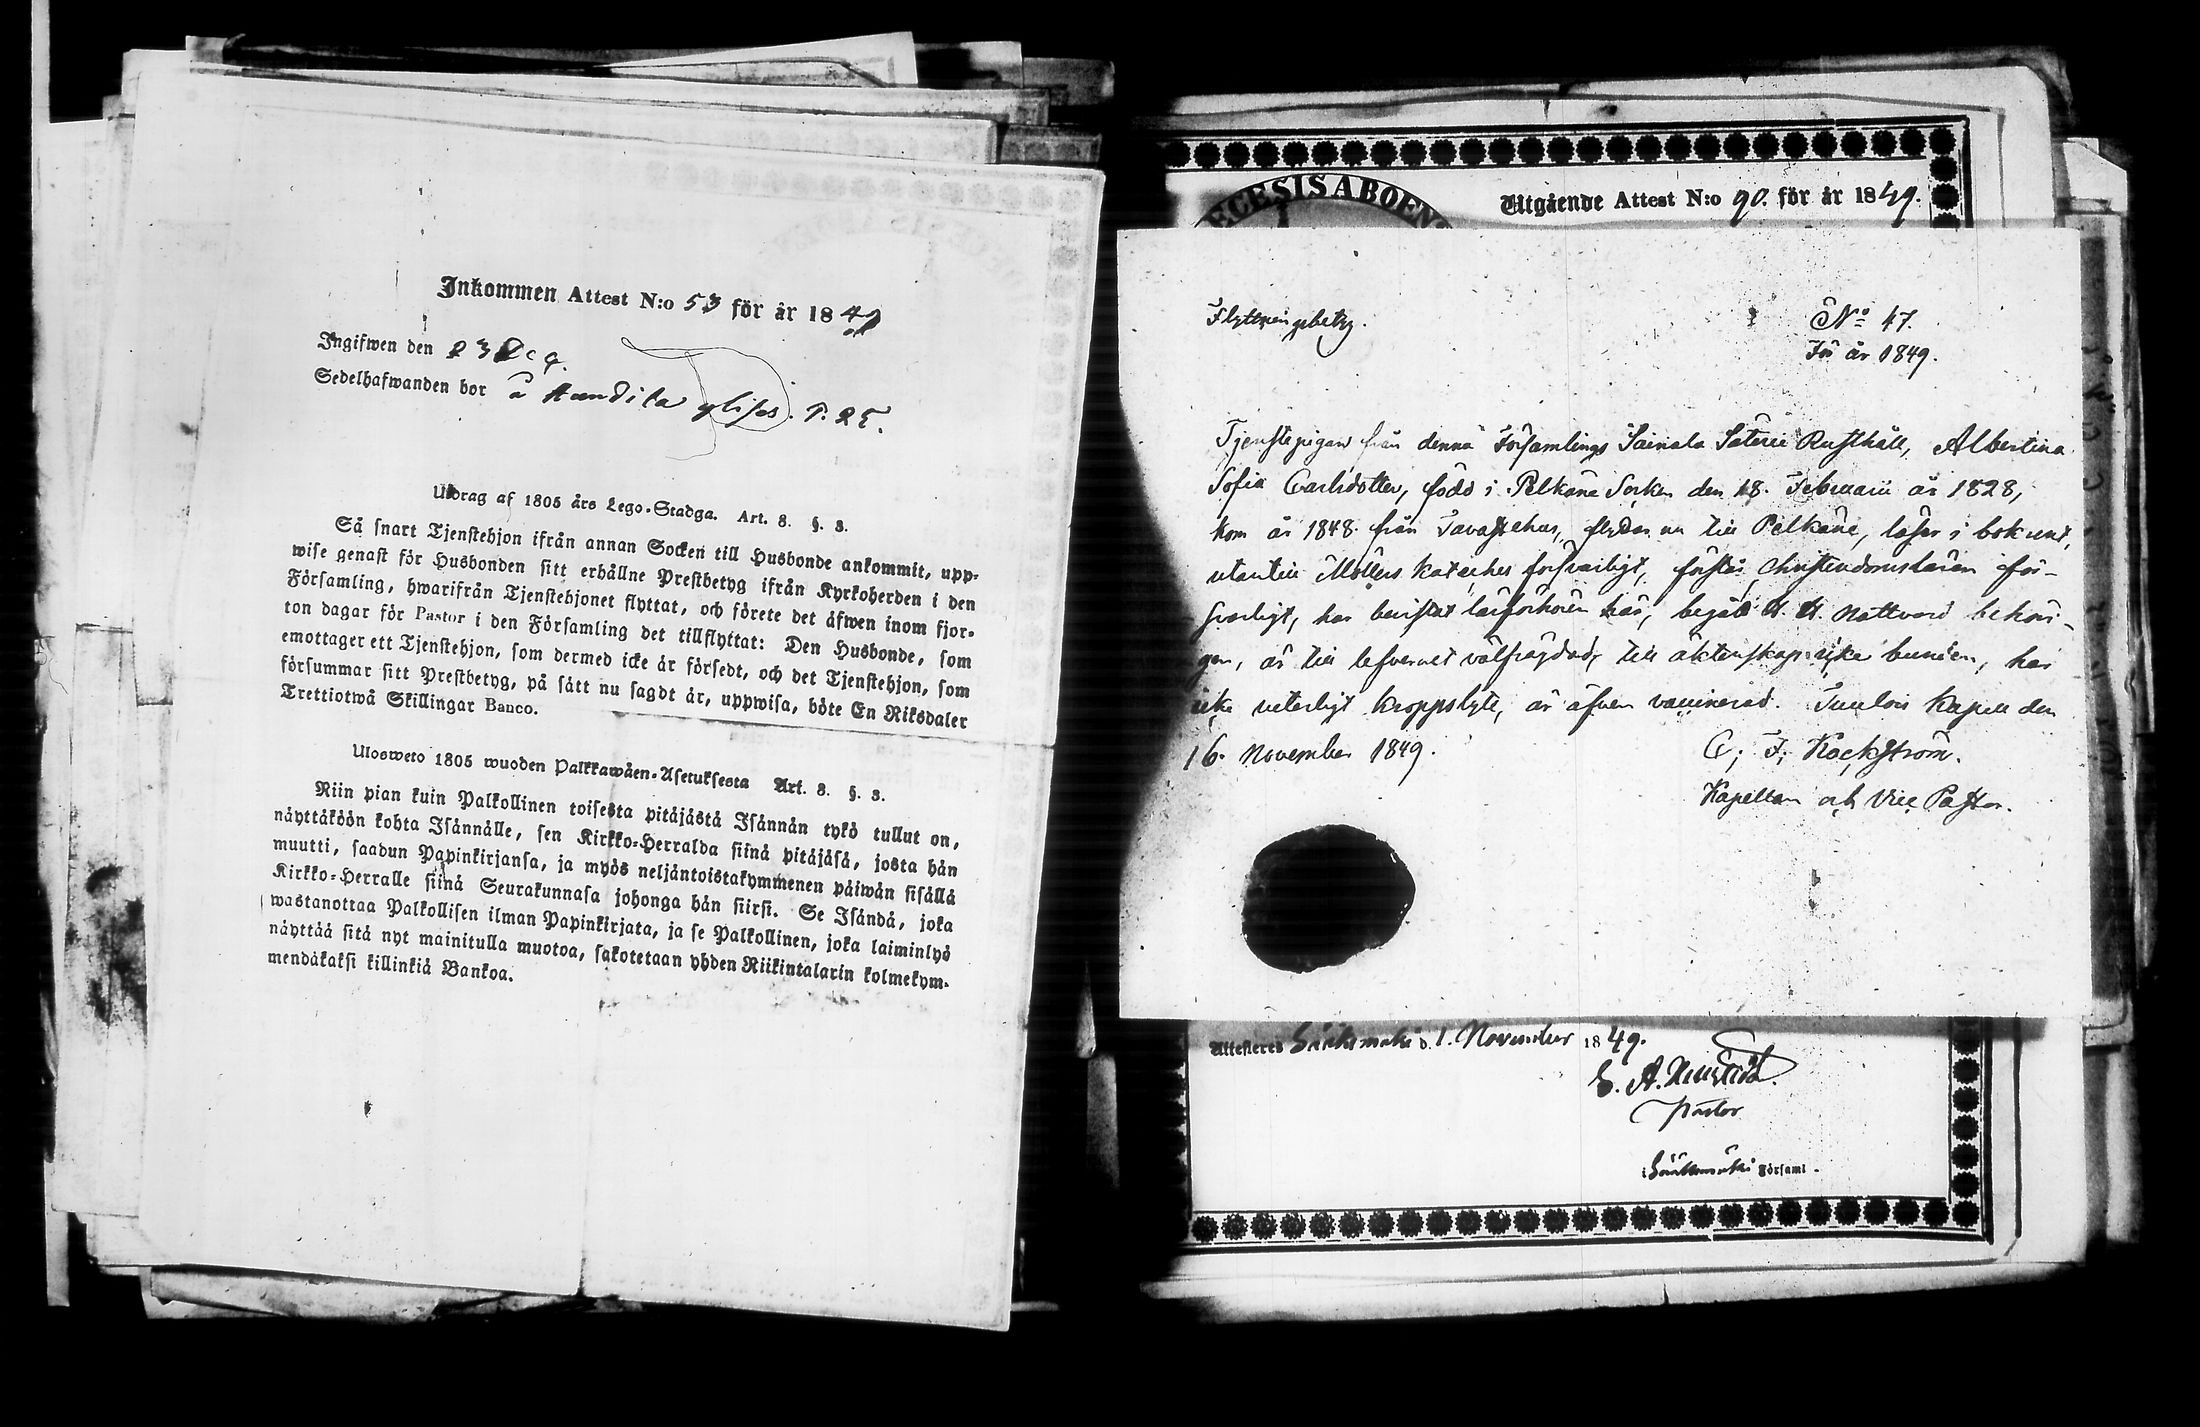 Inkommen Attest N:o 53 för år 1849
Ingifwen den 23
Sedelhafwanden bor å
Utdrag af 1805 års Lego-Stadga. Art. 8. §. 3.
Så snart Tjenstehjon ifrån annan Socken till Husbonde ankommit, upp-
wise genast för Husbonden sitt erhållne Prestbetyg ifrån Kyrkoherden i den
Församling, hwarifrån Tjenstehjonet flyttat, och förete det äfwen inom fjor-
ton dagar för Pastor i den Församling det tillflyttat: Den Husbonde, som
emottager ett Tjenstehjon, som dermed icke är försedt, och det Tjenstehjon, som
försummar sitt Prestbetyg, på sätt nu sagdt är, uppwisa, böte En Riksdaler
Trettiotwå Skillingar Banco.
Ulosweto 1805 wuoden Palkkawäen-Asetuksesta Art. 8. §. 3.
Niin pian kuin Palkollinen toisesta pitäjästä Isännän tykö tullut on,
näyttäköön kohta Isännälle, sen Kirkko-Herralda siinä pitäjäsä, josta hän
muutti, saadun Papinkirjansa, ja myös neljäntoistakymmenen päiwän sisällä
Kirkko-Herralle siinä Seurakunnasa johonga hän siirsi. Se Isändä, joka
wastanottaa Palkollisen ilman Papinkirjata, ja se Palkollinen, joka laiminlyö
näyttää sitä nyt mainitulla muotoa, sakotetaan yhden Riikintalarin kolmekym-
mendäkaksi killinkiä Bankoa.
ECESIS ABOEN
Utgående Attest N:o 90. för år 1849.
Flyttningsbetyg.
No 47.
För år 1849.
Tjenstepigan från denna Församlings Sainala Säteri Rusthåll, Albertina
Sofia Carlsdotter, född i Pelkäne Socken den 18. Februarii år 1828,
kom år 1848 från Tavastehus, flyttar nu till Pelkäne, läser i bok rent,
utantill Möllers kateches försvarligt, förstår Christendomsläran för-
svarligt, har bevistat läsförhören här, begått H. H. Nattvard behöri-
gen, är till lefvernet välfrägdad, till äktenskap icke bunden, har
icke veterligt kroppslyte, är äfven vaccinerad. Tuulois Kapell den
16. November 1849.
C. F. Kockström.
Kapellan och Vice Pastor.
Attesteras Sääksmäki d. 1. November 1849.
Pastor
Sääksmäki Församl.